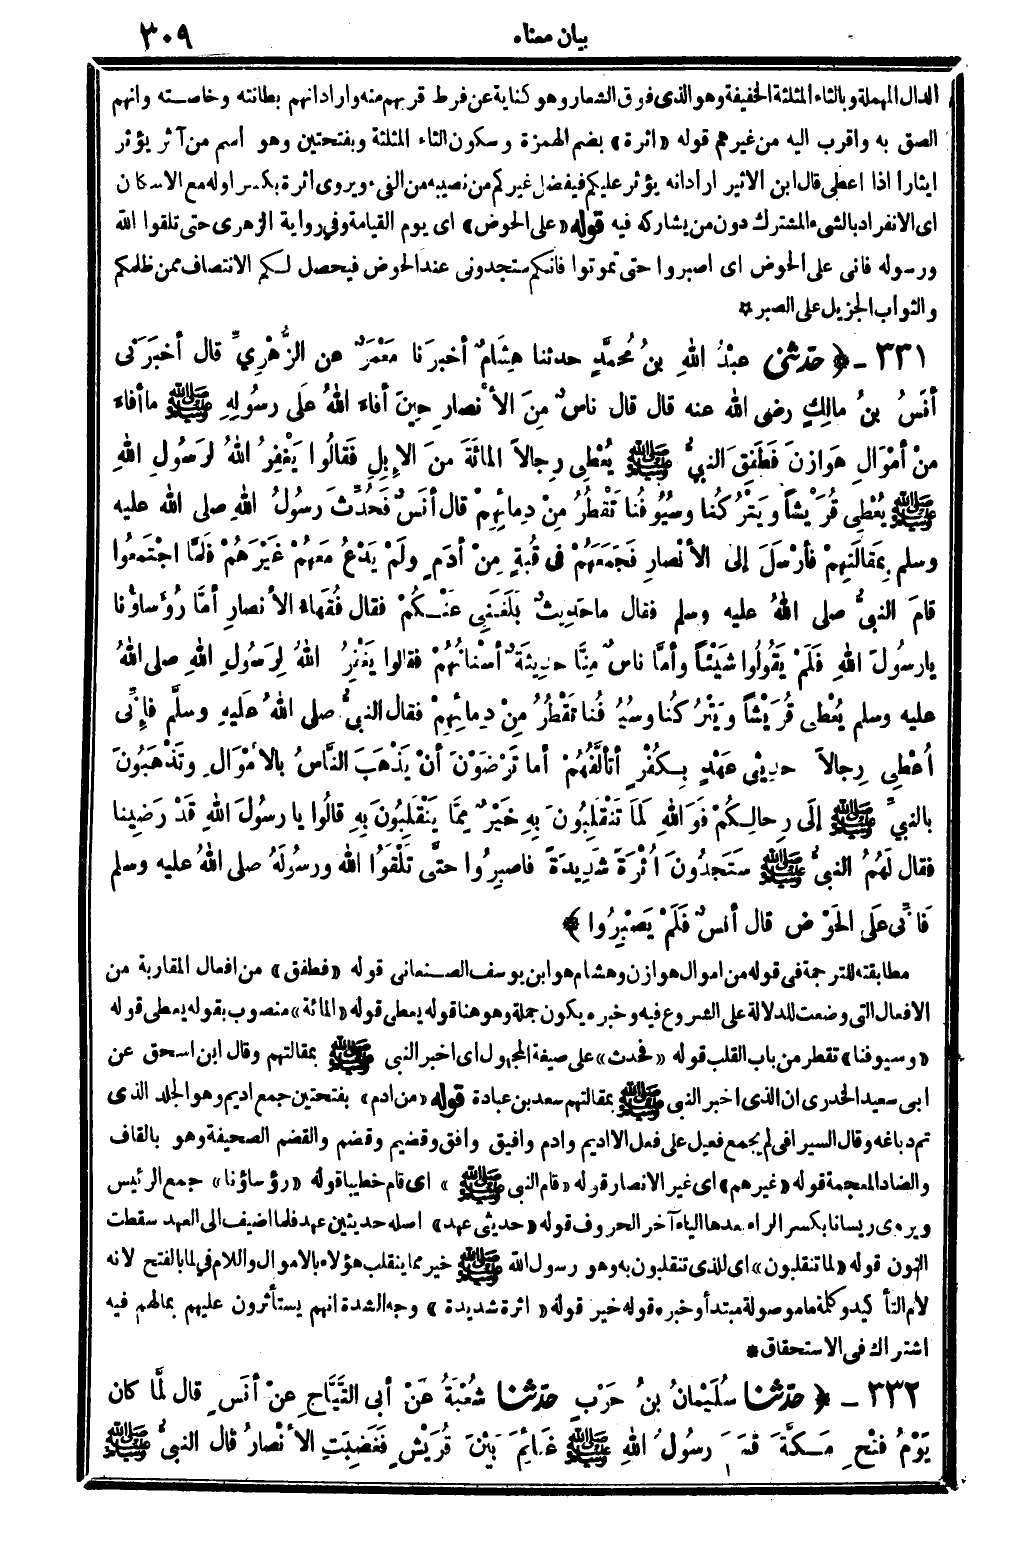 بيان معناه ٣٠٩
الدال المهملة وبالثاء المثلثة الخفيفة وهو الذى فوق الشعار وهو كناية عن فرط قربهم منه وارادانهم بطانته وخاصته وانهم
الصق به واقرب اليه من غيرهم قوله «اثرة» بضم الهمزة وسكون الثاء المثلثة وبفتحتين وهو اسم من آثر يؤثر
ايثارا اذا اعطى قال ابن الاثير ارادانه يؤثر عليكم فيفضل غيركم من نصيبه من الفىء ويروى اثرة بكسر اوله مع الاسكان
اى الانفراد بالشىء المشترك دون من يشاركه فيه قوله «على الحوض» اى يوم القيامة وفي رواية الزهرى حتى تلقوا الله
ورسوله فانى على الحوض اى اصبروا حتى تموتوا فانكم ستجدونى عند الحوض فيحصل لكم الانتصاف ممن ظلمكم
والثواب الجزيل على الصبر *
٣٣١ ـ ﴿ حَدَّثَنِى عَبْدُ اللهِ بنُ مُحمَّدٍ حدثنا هِشَامٌ أخبرَنا مَعْمَرٌ عن الزُّهْرِيِّ قال أخبَرَنى
أنَسُ بنُ مالِكٍ رضى الله عنه قال قال ناسٌ مِنَ الأنْصارِ حِينَ أفاءَ اللهُ عَلَى رسولِهِ ﷺ ما أفاءَ
مِنْ أمْوَالِ هَوازِنَ فَطَفِقَ النبيُّ ﷺ يُعْطِى رِجالاً المائَةَ مِنَ الإبِلِ فَقالُوا يَغْفِرُ اللهُ لرَسُولِ اللهِ
ﷺ يُعْطِى قُرَيْشاً ويَتْرُكُنا وسُيُوفُنا تَقْطُرُ مِنْ دِمائِهِمْ قال أنَسٌ فَحُدِّثَ رسولُ اللهِ صلى الله عليه
وسلم بِمَقالَتِهِمْ فأرْسَلَ إلى الأنْصارِ فَجَمَعَهُمْ فى قُبةٍ مِنْ أدَمٍ ولَمْ يَدْعُ مَعهُمْ غَيْرَهُمْ فَلمَّا اجْتَمعُوا
قامَ النبيُّ صلى اللهُ عليه وسلم فقال ماحَدِيثٌ بَلَغَنِى عَنْكُمْ فقال فُقَهاءُ الأنصارِ أمَّا رُؤَساؤنا
يارسُولَ اللهِ فَلَمْ يَقُولُوا شَيْئاً وأمَّا ناسٌ مِنَّا حدِيثَةٌ أسْنانُهُمْ فقالوا يَغْفِرُ اللهُ لِرَسُولِ اللهِ صلى اللهُ
عليه وسلم يُعْطِى قُرَيْشاً ويَتْرُكُنا وسيُوفُنا تقْطُرُ مِنْ دِمائِهِمْ فقال النبيُّ صلى اللهُ عَليهِ وسلَّم فإنِّى
أُعْطِى رِجالاً حدِيثى عَهْدٍ بِكُفْرٍ أتألَّفُهُمْ أما تَرْضَوْنَ أنْ يَذْهَبَ النَّاسُ بالأمْوَالِ وتَذْهَبُونَ
بالنبيِّ ﷺ إلَى رِحالِكُمْ فوَاللهِ لَمَا تَنْقَلِبُونَ بِهِ خَيْرٌ مِمَّا يَنْقَلِبُونَ بِهِ قالُوا يا رسولَ اللهِ قَدْ رَضِينا
فقال لَهُمُ النبيُّ ﷺ سَتَجِدُونَ أُثْرَةً شَدِيدَةً فاصبِرُوا حتَّى تَلْقَوُا الله ورسولَهُ صلى اللهُ عليه وسلم
فَانِّى عَلَى الحَوْضِ قال أنسٌ فَلَمْ يَصْبِرُوا ﴾
مطابقته للترجمة فى قوله من اموال هوازن وهشام هو ابن يوسف الصنعانى قوله «فطفق» من افعال المقاربة من
الافعال التى وضعت للدلالة على الشروع فيه وخبره يكون جملة وهو هنا قوله يعطى قوله «المائة» منصوب بقوله يعطى قوله
«وسيوفنا» تقطر من باب القلب قوله «فحدث» على صيغة المجهول اى اخبر النبى ﷺ بمقالتهم وقال ابن اسحق عن
ابى سعيد الخدرى ان الذى اخبر النبى ﷺ بمقالتهم سعد بن عبادة قوله «من ادم» بفتحتين جمع اديم وهو الجلد الذى
تم دباغه وقال السيرافى لم يجمع فعيل على فعل الا اديم وادم وافيق وافق وقضيم وقضم والقضم الصحيفة وهو بالقاف
والضاد المعجمة قوله «غيرهم» اى غير الانصار قوله «قام النبى ﷺ» اى قام خطيبا قوله «رؤساؤنا» جمع الرئيس
ويروى ريسانا بكسر الراء بعدها الياء آخر الحروف قوله «حديثى عهد» اصله حديثين عهد فلما اضيف الى العهد سقطت
النون قوله «لما تنقلبون» اى للذى تنقلبون به وهو رسول الله ﷺ خير مما ينقلب هؤلاء بالاموال واللام في لما بالفتح لانه
لام التأكيد وكلمة ما موصولة مبتدأ وخبره قوله خير قوله «اثرة شديدة» وجه الشدة انهم يستأثرون عليهم بمالهم فيه
اشتراك فى الاستحقاق *
٣٣٢ ـ ﴿ حدَّثنا سُلَيْمانُ بنُ حَرْبٍ حدَّثنا شُعْبَةُ عَنْ أبى التَّيَّاحِ عنْ أنَسٍ قال لَمَّا كان
يَوْمُ فتْحِ مَكَّةَ قسَمَ رسولُ اللهِ ﷺ غَنائِمَ بَيْنَ قُرَيْشٍ فَغَضِبَتِ الأنْصارُ قال النبيُّ ﷺ